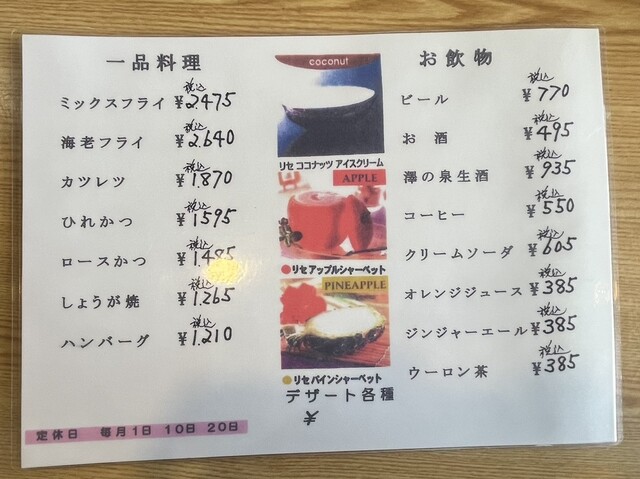 一品料理
ミックスフライ 税込 ¥2.475
海老フライ 税込 ¥2.640
カツレツ 税込 ¥1.870
ひれかつ 税込 ¥1595
ロースかつ 税込 ¥1.485
しょうが焼 税込 ¥1.265
ハンバーグ 税込 ¥1.210
定休日 毎月1日 10日 20日
coconut
リセ ココナッツ アイスクリーム
APPLE
●リセアップルシャーベット
PINEAPPLE
●リセパインシャーベット
デザート各種
¥
お飲物
ビール 税込 ¥770
お酒 税込 ¥495
澤の泉生酒 税込 ¥935
コーヒー 税込 ¥550
クリームソーダ 税込 ¥605
オレンジジュース 税込 ¥385
ジンジャーエール 税込 ¥385
ウーロン茶 税込 ¥385